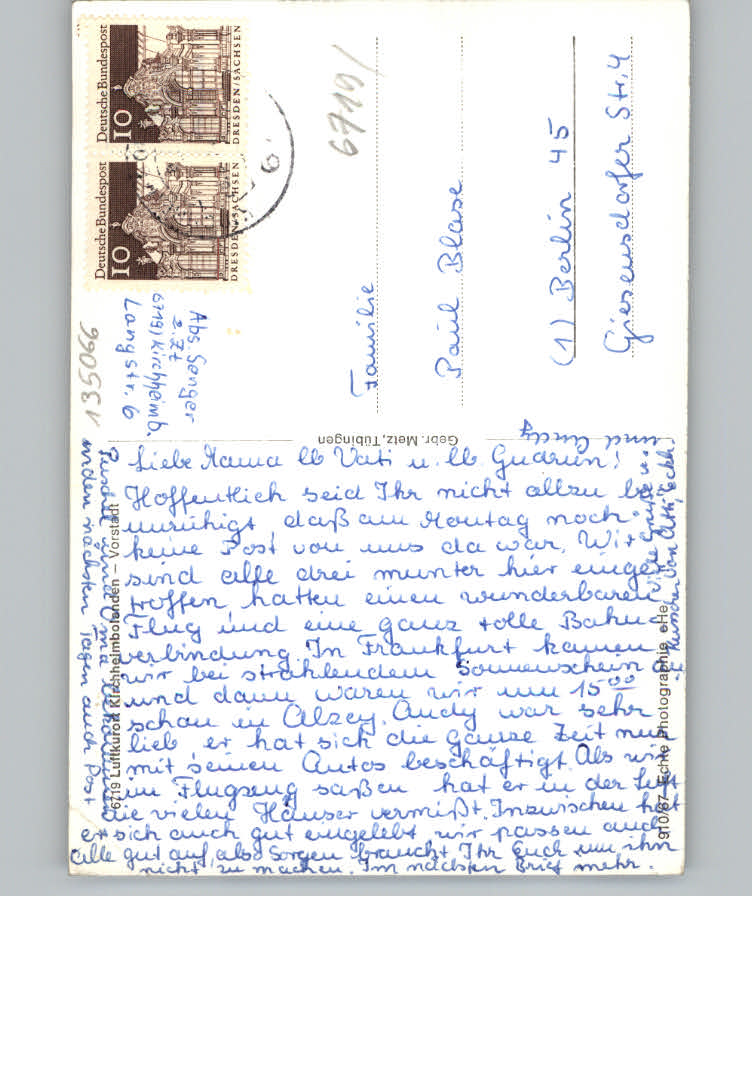 Deutsche Bundespost
10
DRESDEN/SACHSEN
Deutsche Bundespost
10
DRESDEN/SACHSEN
6719/
135066
Abs. Senger
z. Zt
6719) Kirchheimb.
Langstr. 6
Familie
Paul Blase
(1) Berlin 45
Giesensdorfer Str. 4
Gebr. Metz, Tübingen
6719 Luftkurort Kirchheimbolanden – Vorstadt
910/67 Echte Photographie
Liebe Mama lb Vati u. lb. Gudrun!
Hoffentlich seid Ihr nicht allzu be
unruhigt, daß am Montag noch
keine Post von uns da war. Wir
sind alle drei munter hier einge
troffen, hatten einen wunderbaren
Flug und eine ganz tolle Bahn
verbindung. In Frankfurt kamen
wir bei strahlendem Sonnenschein
und dann waren wir um 15 00
schon in Alzey. Andy war sehr
lieb, er hat sich die ganze Zeit nur
mit seinen Autos beschäftigt. Als wir
im Flugzeug saßen hat er in der Luft
die vielen Häuser vermißt. Inzwischen hat
er sich auch gut eingelebt wir passen auch
alle gut auf, also Sorgen braucht Ihr Euch um ihn
nicht zu machen. Im nächsten Brief mehr.
und Oma bekommen
in den nächsten Tagen auch Post
Viele Grüße u.
Küsse von
und Andy